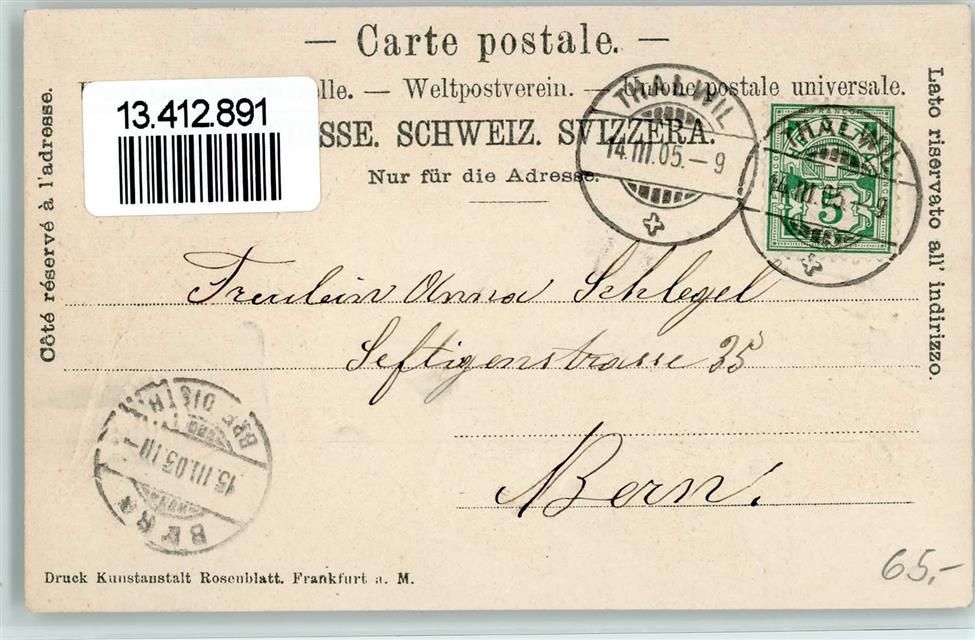 — Carte postale. —
elle. — Weltpostverein. — Unione postale universale.
SSE. SCHWEIZ. SVIZZERA.
Nur für die Adresse.
13.412.891
THALWIL
14.III.05.–9
THALWIL
14.III.05.–9
5
Côté réservé à l'adresse.
Lato riservato all' indirizzo.
Fräulein Anna Schlegel
Seftigenstrasse 35
Bern.
BRF. DISTR.
15.III.05
BERN
Druck Kunstanstalt Rosenblatt. Frankfurt a. M.
65.-